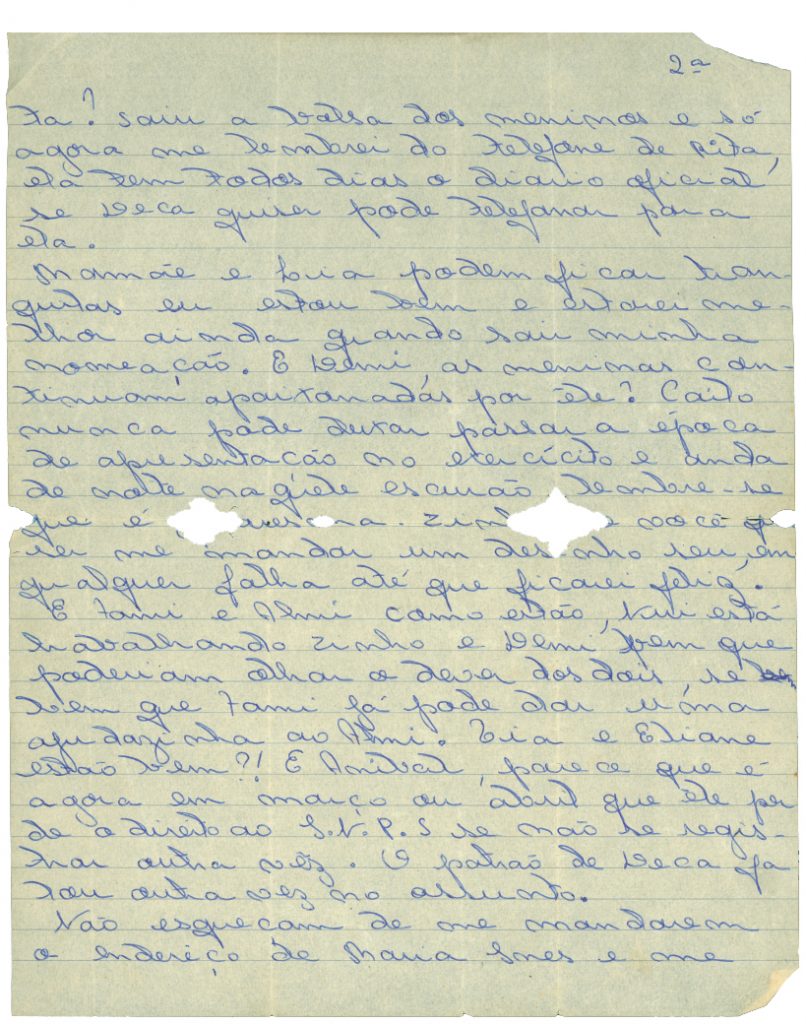 2ª
ta? saiu a bolsa dos meninos e só
agora me lembrei do telefone de Rita,
ela tem todos dias o diário oficial,
se Deca quiser pode telefonar para
ela.
Mamãe e Lia podem ficar tran-
quilas eu estou bem e estarei me-
lhor ainda quando sair minha
nomeação. E Demi, as meninas con-
tinuam apaixonadas por êle? Caito
nunca pode deixar passar a época
de apresentação no exercício e ainda
de noite escurão lembre-se
que é você
ser me mandar um desenho seu, em
qualquer falha até que ficarei feliz.
E Tami e Almi como estão, Nui está
trabalhando Zinho e Demi, bem que
poderiam olhar o dever dos dois, se bem
bem que Tami já pode dar uma
ajudazinha ao Almi. Lia e Eliane
estão bem?! E Anibal, parece que é
agora em março ou abril que êle per
de o direito ao S.N.P.S se não se regis-
trar outra vêz. O patrão de Deca fa
lou outra vez no assunto.
Não esqueçam de me mandarem
o endereço de Maria Ines e me